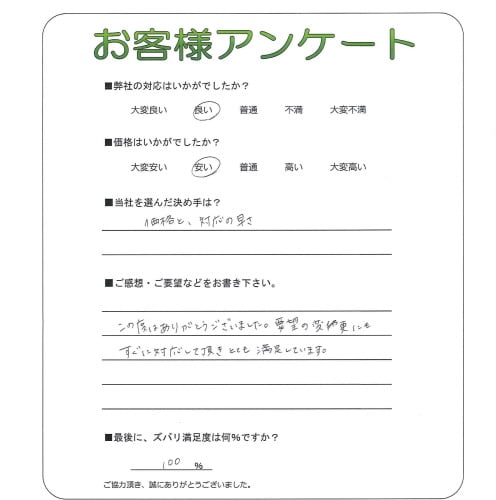 お客様アンケート
■弊社の対応はいかがでしたか？
大変良い 良い 普通 不満 大変不満
■価格はいかがでしたか？
大変安い 安い 普通 高い 大変高い
■当社を選んだ決め手は？
価格と、対応の早さ
■ご感想・ご要望などをお書き下さい。
この度はありがとうございました。要望の変更にも
すぐに対応して頂きとても満足しています。
■最後に、ズバリ満足度は何%ですか？
100 %
ご協力頂き、誠にありがとうございました。